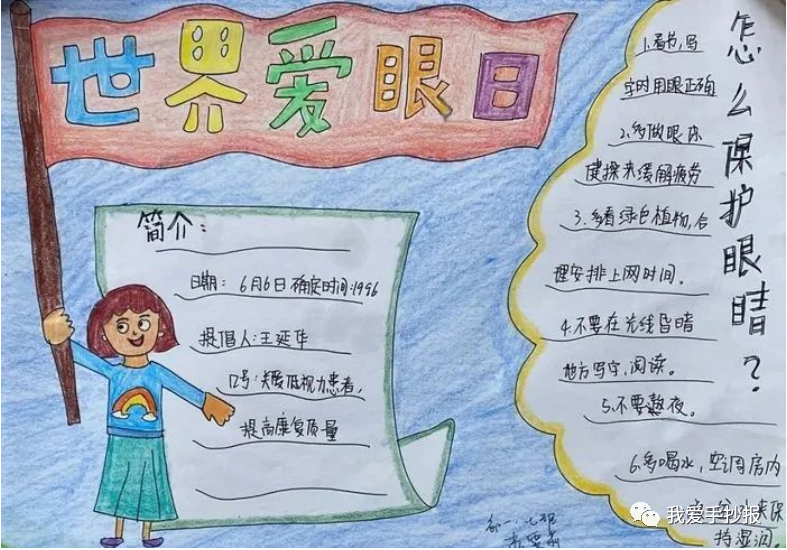 世界爱眼日
简介：
日期：6月6日 确定时间:1996
提倡人:王延华
口号:关爱低视力患者,
提高康复质量
怎么保护眼睛？
1.看书,写
字时用眼正确
2.多做眼保
健操来缓解疲劳
3.多看绿色植物,合
理安排上网时间。
4.不要在光线昏暗
地方写字,阅读。
5.不要熬夜。
6.多喝水,空调房内
持湿润。
我爱手抄报